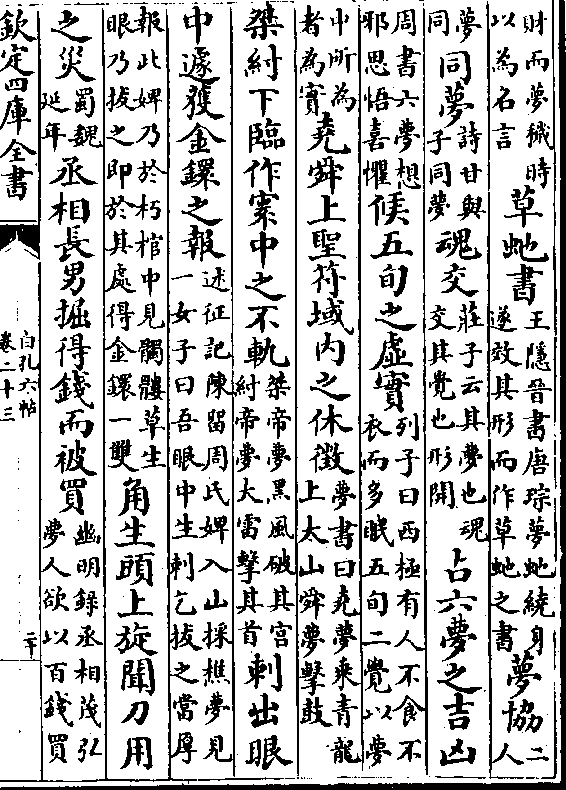 財而夢穢時以為名言草虵書王隱晉書唐琮夢虵繞身遂效其形而作草虵之書夢協二人
夢同同夢詩甘與子同夢魂交莊子云其夢也魂交其覺也形開占六夢之吉凶
周書六夢想邪思悟喜懼候五旬之虛實列子曰西極有人不食不衣而多眠五旬二覺以夢
中所為者為實堯舜上聖符域内之休徴夢書曰堯夢乘青龍上太山舜夢擊鼓
桀紂下臨作寰中之不軌桀帝夢黑風破其宫紂帝夢大雷擊其首刺出眼
中遽獲金鐶之報述征記陳留周氏婢入山採樵夢見一女子曰吾眼中生刺乞拔之當厚
報此婢乃於朽棺中見髑髏草生眼乃拔之即於其處得金鐶一雙角生頭上旋聞刀用
之災蜀魏延年丞相長男掘得錢而被買幽明錄丞相茂弘夢人欲以百錢買
欽定四庫全書
白孔六帖
卷二十三
二十